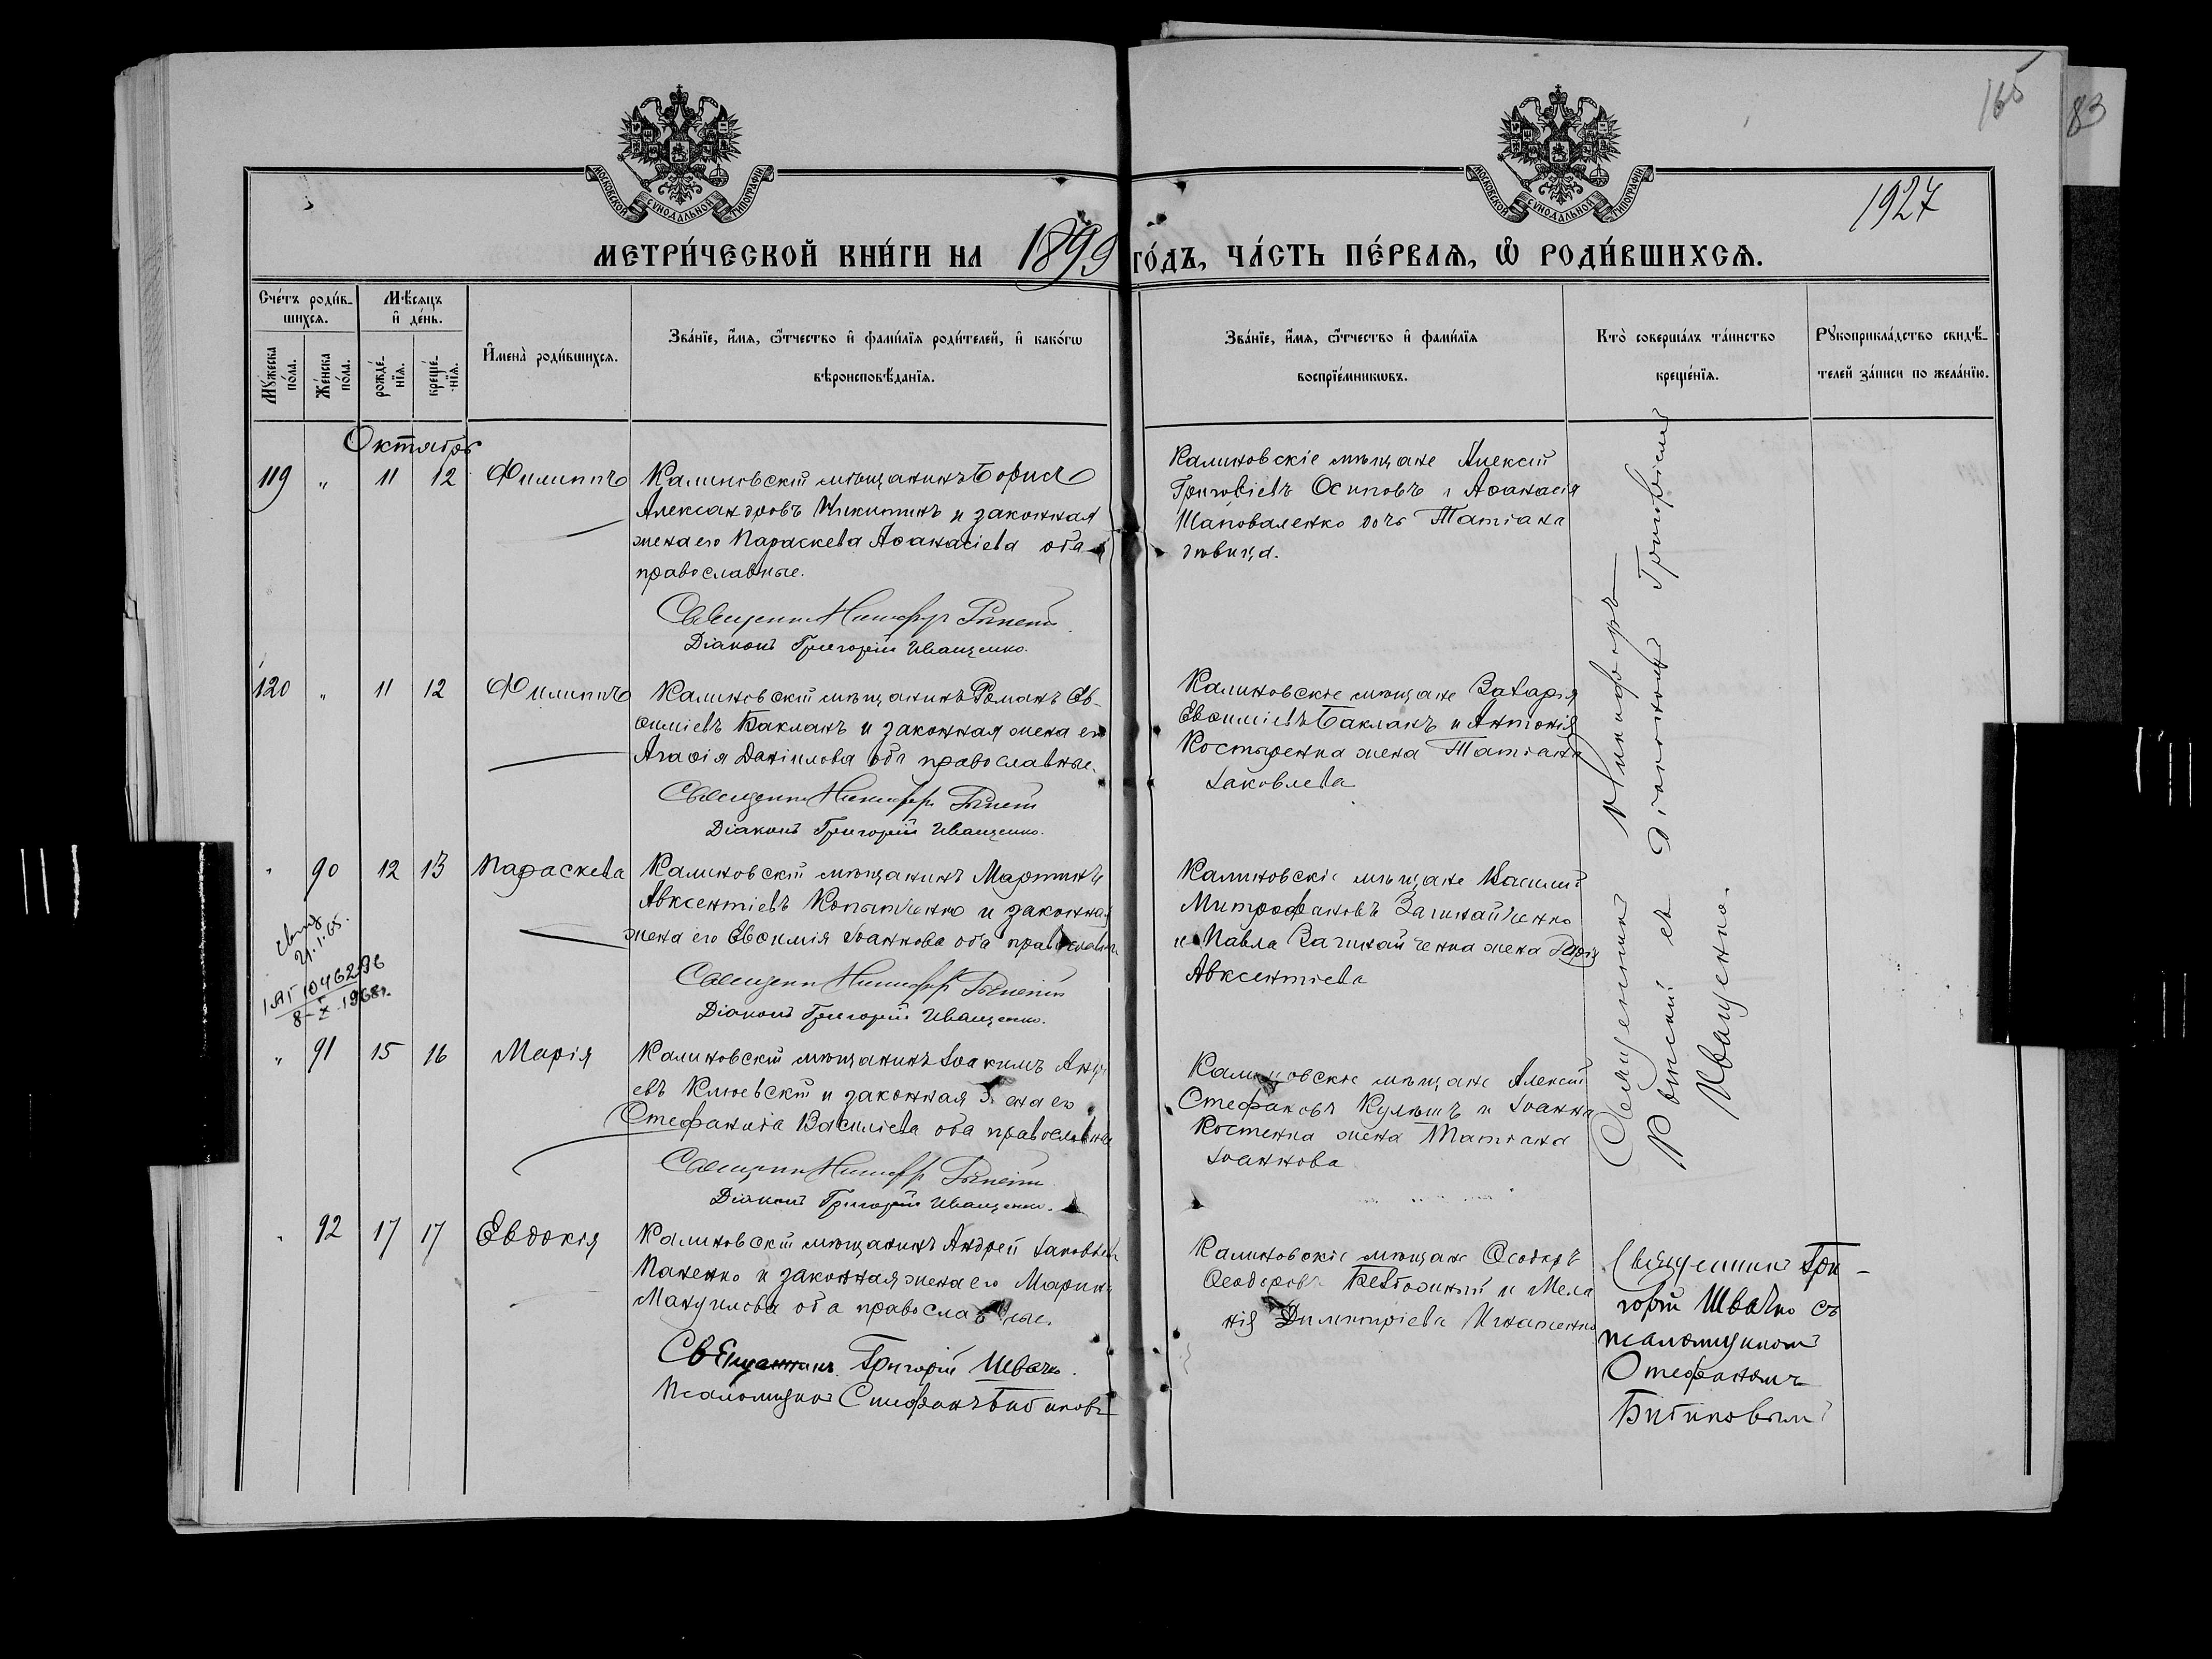 165
83
1927
МОСКОВСКОЙ СѴНОДАЛЬНОЙ ТИПОГРАФІИ
МОСКОВСКОЙ СѴНОДАЛЬНОЙ ТИПОГРАФІИ
МЕТРИ́ЧЕСКОЙ КНИ́ГИ НА 1899 ГО́ДЪ, ЧА́СТЬ ПЕ́РВАѦ, Ѡ҆ РОДИ́ВШИХСѦ.
Сче́тъ роди́в-
шихсѧ.
Мꙋ́жеска по́ла.
Же́нска по́ла.
Мѣ́сѧцъ
и҆ де́нь.
рожде́-
нїѧ.
креще́-
нїѧ.
И҆мена̀ роди́вшихсѧ.
Зва́нїе, и҆́мѧ, ѻ҆́тчество и҆ фами́лїѧ роди́телей, и҆ како́гѡ
вѣроисповѣ́данїѧ.
Зва́нїе, и҆́мѧ, ѻ҆́тчество и҆ фами́лїѧ
воспрїе́мникѡвъ.
Кто̀ соверша́лъ та́инство
креще́нїѧ.
Рꙋкоприкла́дство свидѣ́-
телей за́писи по жела́нїю.
Октябрь
119 " 11 12 Филиппъ
Калиновскій мѣщанинъ Борисъ
Александровъ Никитинъ и законная
жена его Параскева Аѳанасіева оба
православные.
Священникъ Никифоръ
Діаконъ Григорій Иващенко.
Калиновскіе мѣщане Алексій
Григоріевъ Осиповъ и Аѳанасія
Шаповаленко дочь Татіана
дѣвица.
120 " 11 12 Филиппъ
Калиновскій мѣщанинъ Романъ Ев-
ѳиміевъ Бакланъ и законная жена его
Агаѳія Даніилова оба православные.
Священникъ Никифоръ
Діаконъ Григорій Иващенко.
Калиновскіе мѣщане Захарія
Евѳиміевъ Бакланъ и Антонія
Костыренка жена Татіана
Іаковлева
" 90 12 13 Параскева
Калиновскій мѣщанинъ Мартинъ
Авксентіевъ Копытченко и законная
жена его Евѳимія Іоаннова оба православные
Священникъ Никифоръ
Діаконъ Григорій Иващенко.
Калиновскіе мѣщане Василій
Митрофановъ Загинайченко
и Павла Загинайченка жена
Авксентіева
21.1.65.
1АГ 1046296
8-X-1968г.
" 91 15 16 Марія
Калиновскій мѣщанинъ Іоакимъ
евъ Клюевскій и законная жена его
Стефанида Василіева оба православные
Священникъ Никифоръ
Діаконъ Григорій Иващенко.
Калиновскіе мѣщане Алексій
Стефановъ Кулишъ и Іоанна
Костенка жена Татіана
Іоаннова
Священникъ Никифоръ
съ Діакономъ Григоріемъ
Иващенко.
" 92 17 17 Евдокія
Калиновскій мѣщанинъ Андрей Іаковлевъ
Паненко и законная жена его Марина
Мануилова оба православные.
Священникъ Григорій Швачко.
Псаломщикъ Стефанъ Битиковъ
Калиновскіе мѣщане Ѳеодоръ
Ѳеодоровъ и Мела
нія Димитріева Игнатенко
Священникъ Гри-
горій Швачко съ
псаломщикомъ
Стефаномъ
Битиковымъ